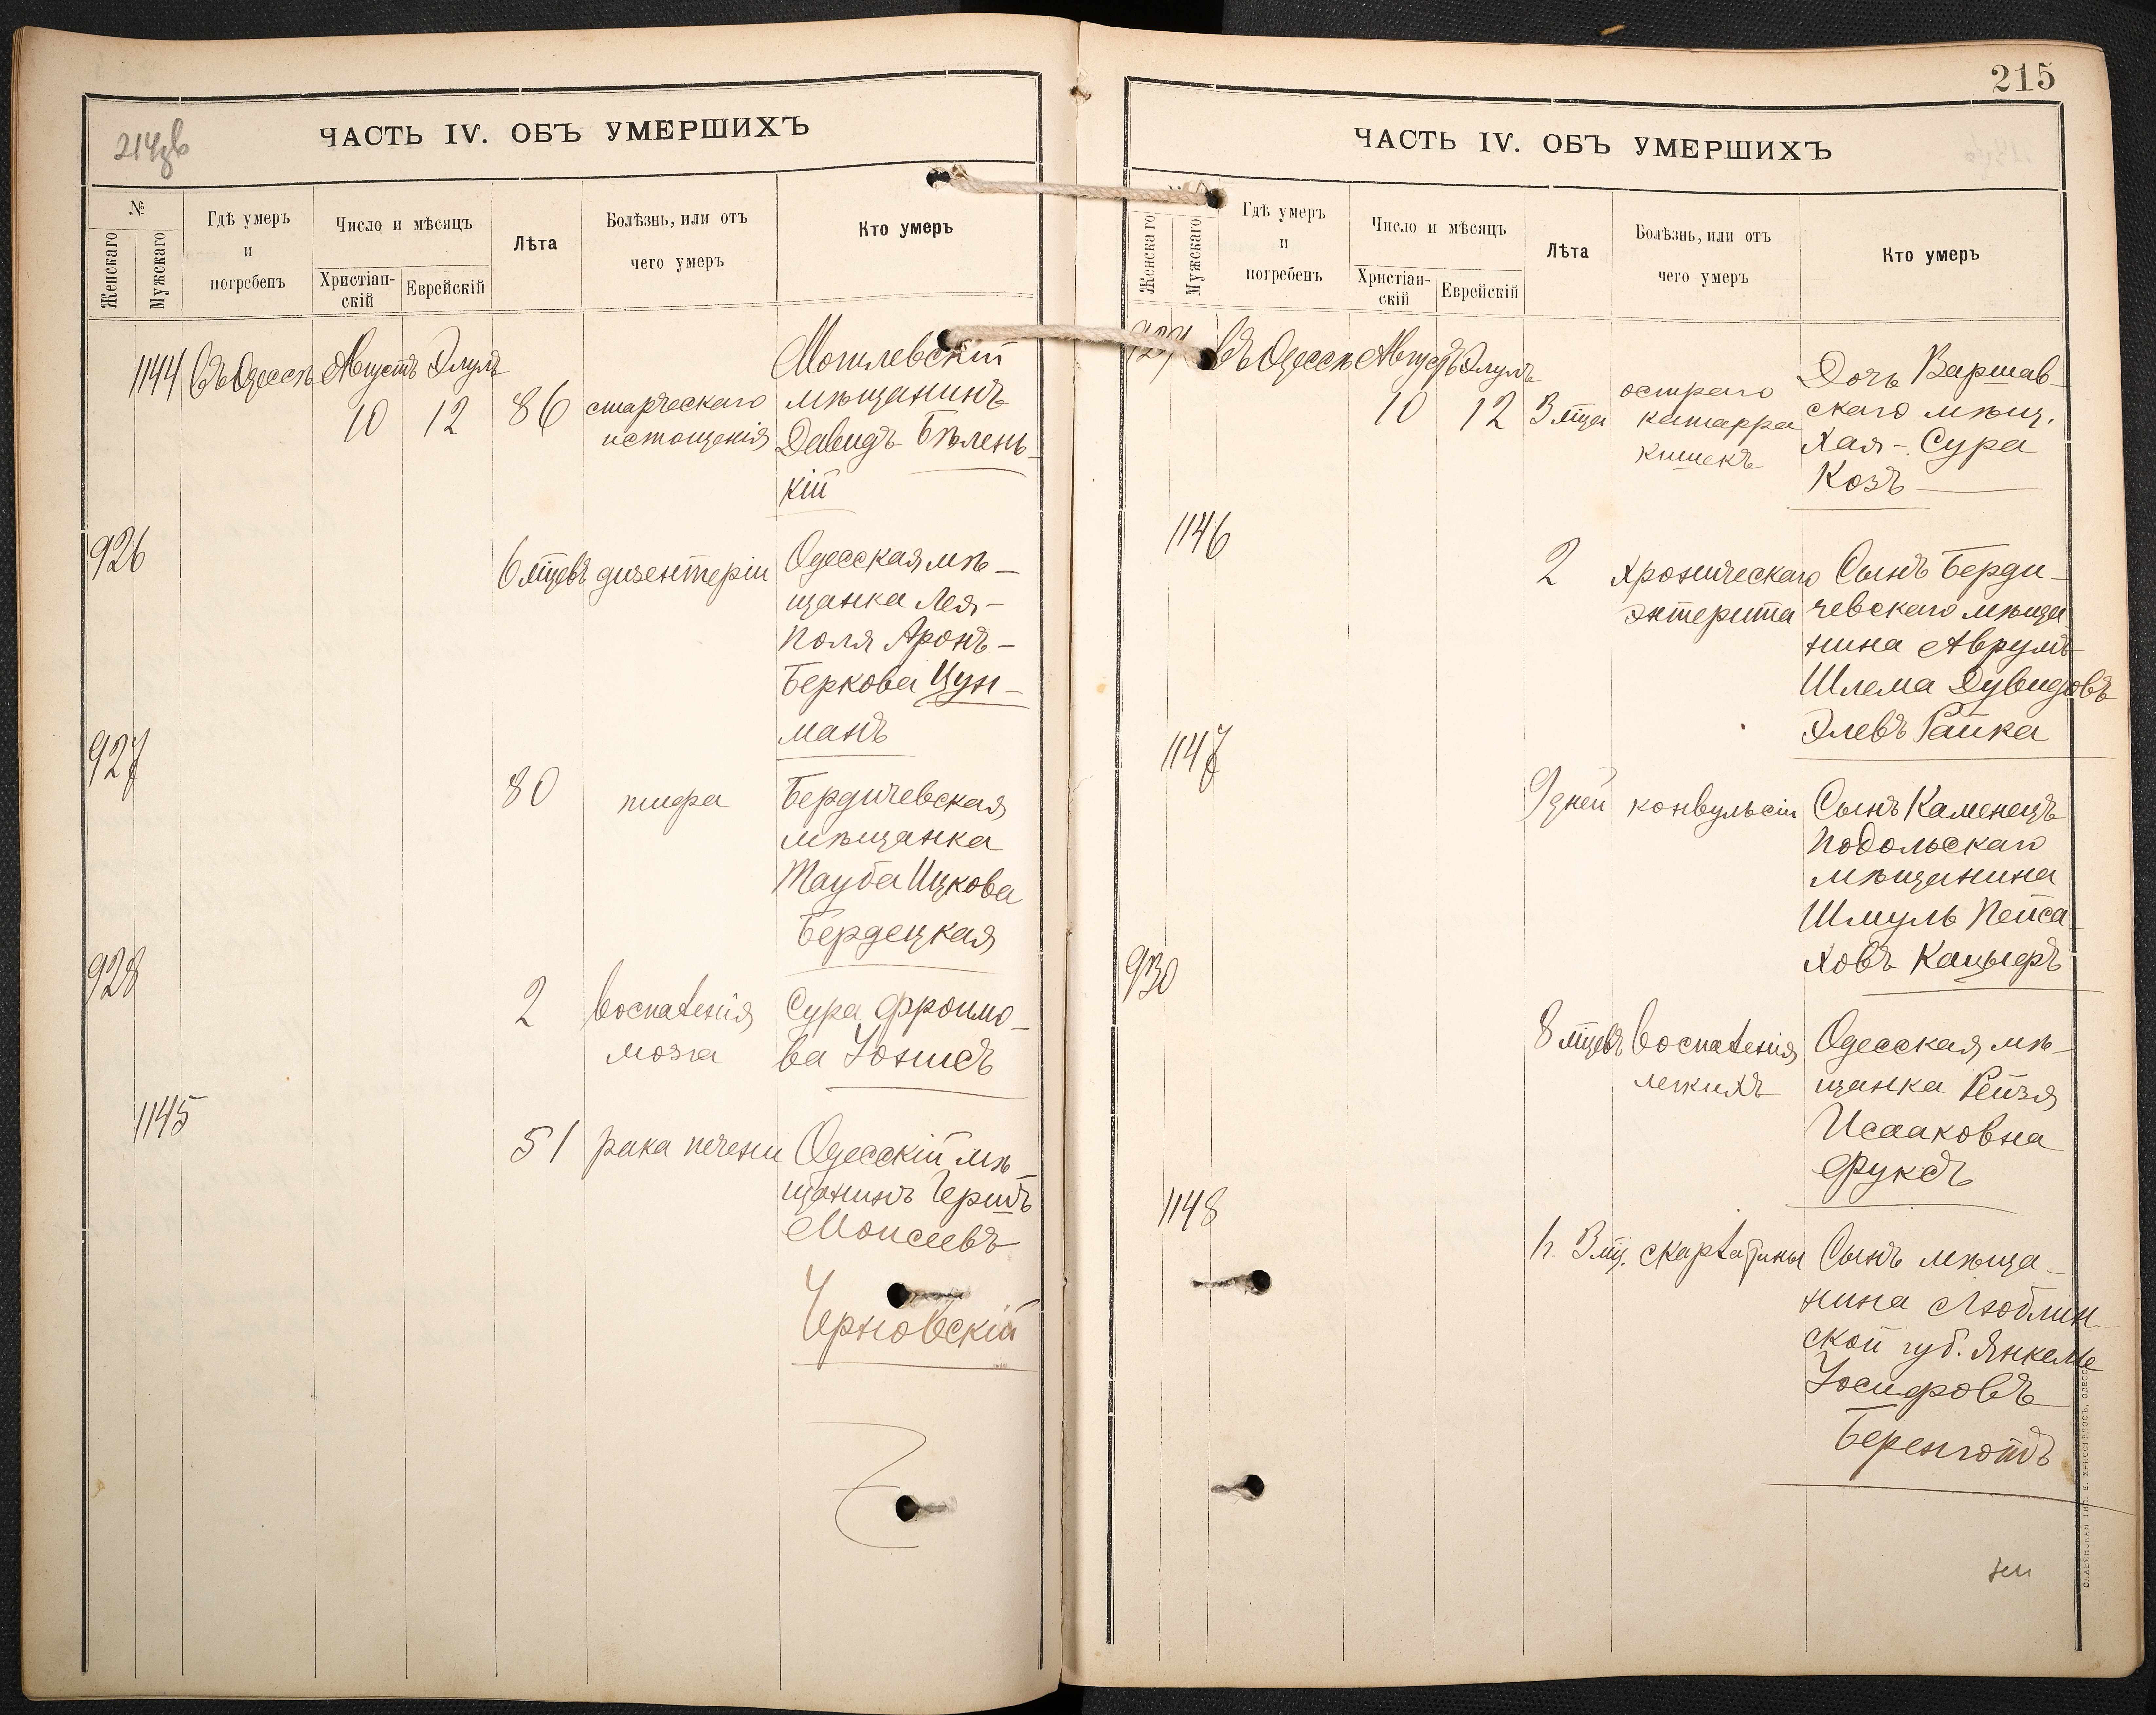 214зв
ЧАСТЬ IV. ОБЪ УМЕРШИХЪ
№
Женскаго
Мужскаго
Гдѣ умеръ
и
погребенъ
Число и мѣсяцъ
Христіан-
скій
Еврейскій
Лѣта
Болѣзнь, или отъ
чего умеръ
Кто умеръ
1144 Въ Одессѣ Августъ Элулъ
10 12 86
старческаго
истощенія
Могилевскій
мѣщанинъ
Давидъ Бѣлень-
кій
926
6 мцевъ дизентеріи
Одесская мѣ-
щанка Лея-
Поля Аронъ-
Беркова Цун-
манъ
927
80 тифа
Бердичевская
мѣщанка
Тауба Ицкова
Бердецкая
928
2 воспаленія
мозга
Сура Фроимо-
ва Іонисъ
1145
51 рака печени
Одесскій мѣ-
щанинъ Гершъ
Моисеевъ
Черновскій
215
ЧАСТЬ IV. ОБЪ УМЕРШИХЪ
Женскаго
Мужскаго
Гдѣ умеръ
и
погребенъ
Число и мѣсяцъ
Христіан-
скій
Еврейскій
Лѣта
Болѣзнь, или отъ
чего умеръ
Кто умеръ
929 Въ Одессѣ Августъ Элулъ
10 12 3 мца
остраго
катарра
кишекъ
Дочь Варшав-
скаго мѣщ.
Хая-Сура
Козъ
1146
2 хроническаго
энтерита
Сынъ Берди-
чевскаго мѣща
нина Аврумъ
Шлема Дувидовъ
Элевъ Райка
1147
9 дней конвульсіи
Сынъ Каменецъ
Подольскаго
мѣщанина
Шмуль Пейса-
ховъ Кацыфъ
930
8 мцевъ воспаленія
легкихъ
Одесская мѣ-
щанка Рейзя
Исааковна
Фуксъ
1148
1 г. 3 мц. скарлатины
Сынъ мѣща-
нина Люблин-
ской губ. Янкель
Іосифовъ
Беренготъ